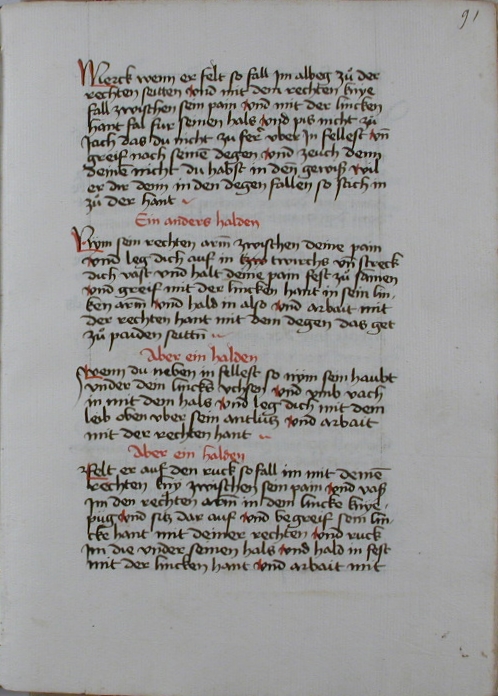 91
Merck wenn er felt so fall Im albeg zů der
rechten seitten vnd mit dem rechten knÿe
fall zwischen sein pain vnd mit der lincken
hant fal fur seinen hals vnd pis nicht zu
Jach das du nicht zu ferr vber In fellest vn̄
greif nach seinē degen vnd zeuch denn
deinē nicht du habst in den gewiß wil
er dir denn in den degen fallen so stich in
zů der hant
Ein anders halden
Nym sein rechten arm̄ zwischen deine pain
vnd leg dich auf in twirchs vn̄ streck
dich vast vnd halt deine pain fest zů samen
vnd greif mit der lincken hant in sein lin
ken arm vnd hald in also vnd arbait mit
der rechten hant mit dem degen das get
zů paiden seittn̄
Aber ein halden
Wenn du neben in fellest so nym sein haubt
vnder dein linckē vchsen vnd vmb vach
in mit dem hals vnd leg dich mit dem
leib oben vber sein antlütz vnd arbait
mit der rechten hant
Aber ein halden
Felt er auf den ruck so fall im mit deinē
rechten knÿ zwischen sein pain vnd vaß
Im den rechten arm in dein lincke knÿe
püg vnd sitz dar auf vnd begreif sein lin
cke hant mit deiner rechten vnd ruck
im die vnder seinen hals vnd hald in fest
mit der lincken hant vnd arbait mit